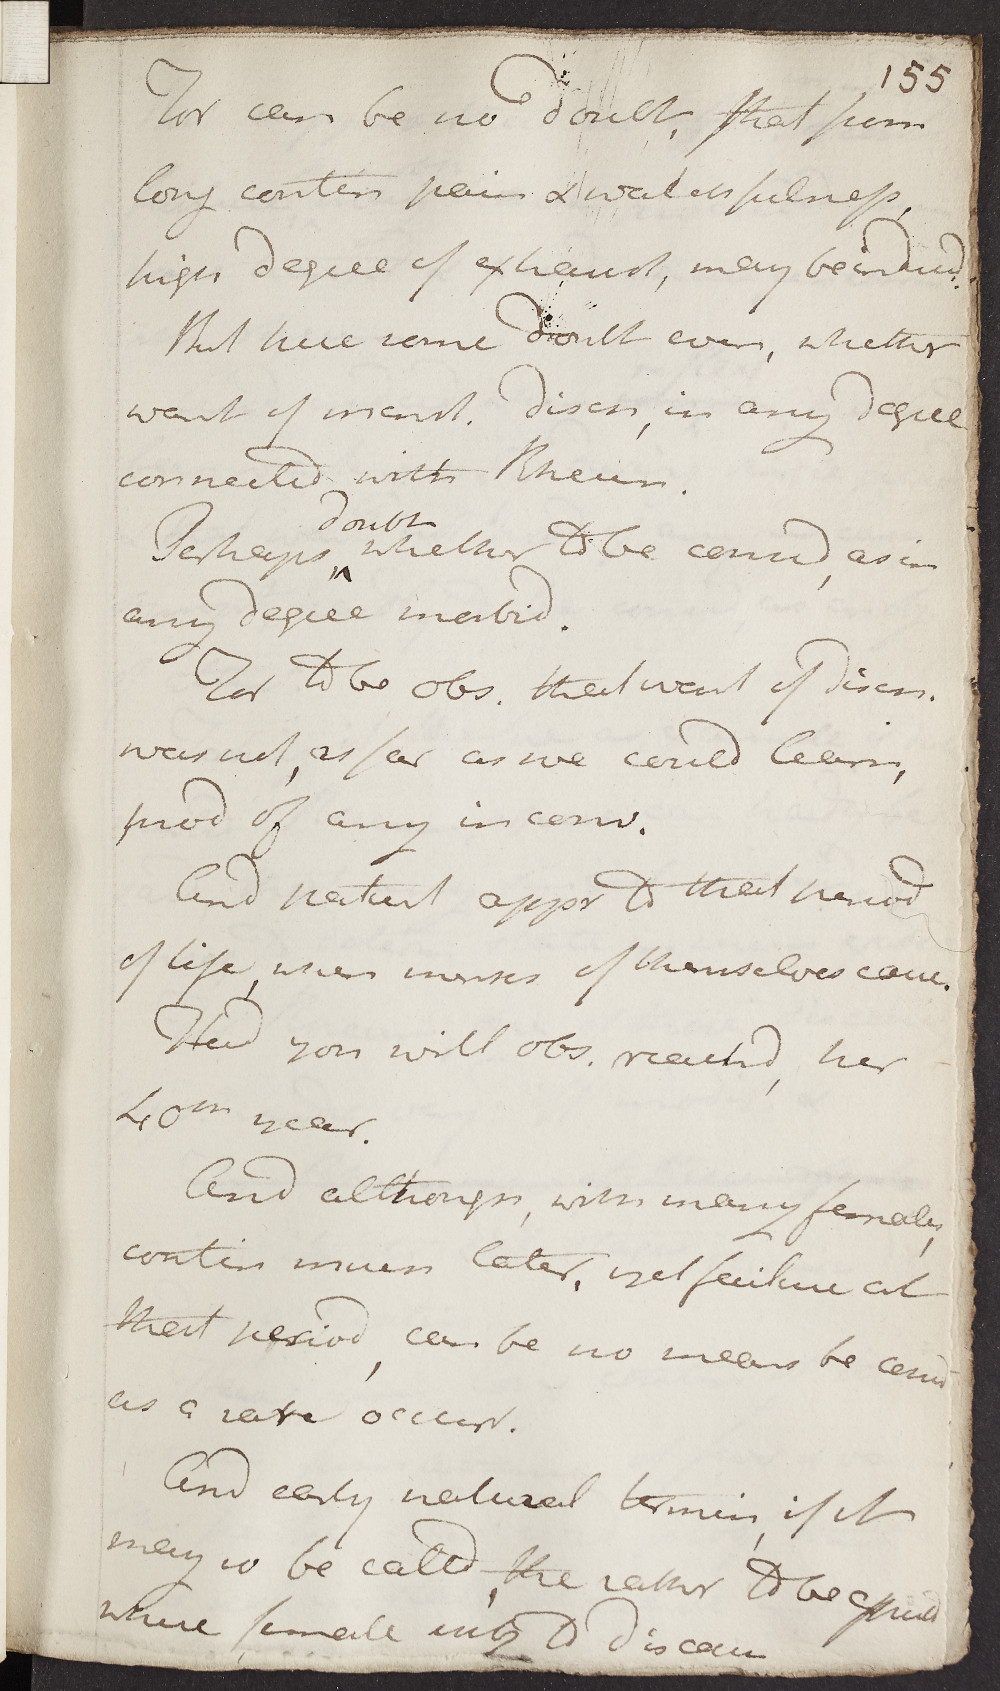 155
For can be no doubt, that from
long contin pain & watchfulness,
high degree of exhaust, may be induced.
But here some doubt even, whether
want of menst. disch, in any degree
connected with Rheum.
Perhaps doubt whether to be consid, as in
any degree morbid.
For to be obs. that want of disch.
was not, as far as we could learn,
prod of any inconv.
And patient appr to that period
of life, when menses of themselves cease.
Had you will obs. reached, her
40th year.
And although, with many females,
contin much later, yet failure at
that period, can be no means be consid
as a rare occurr.
And early natural termin, if it
may so be called, the rather to be
where female subj to discha